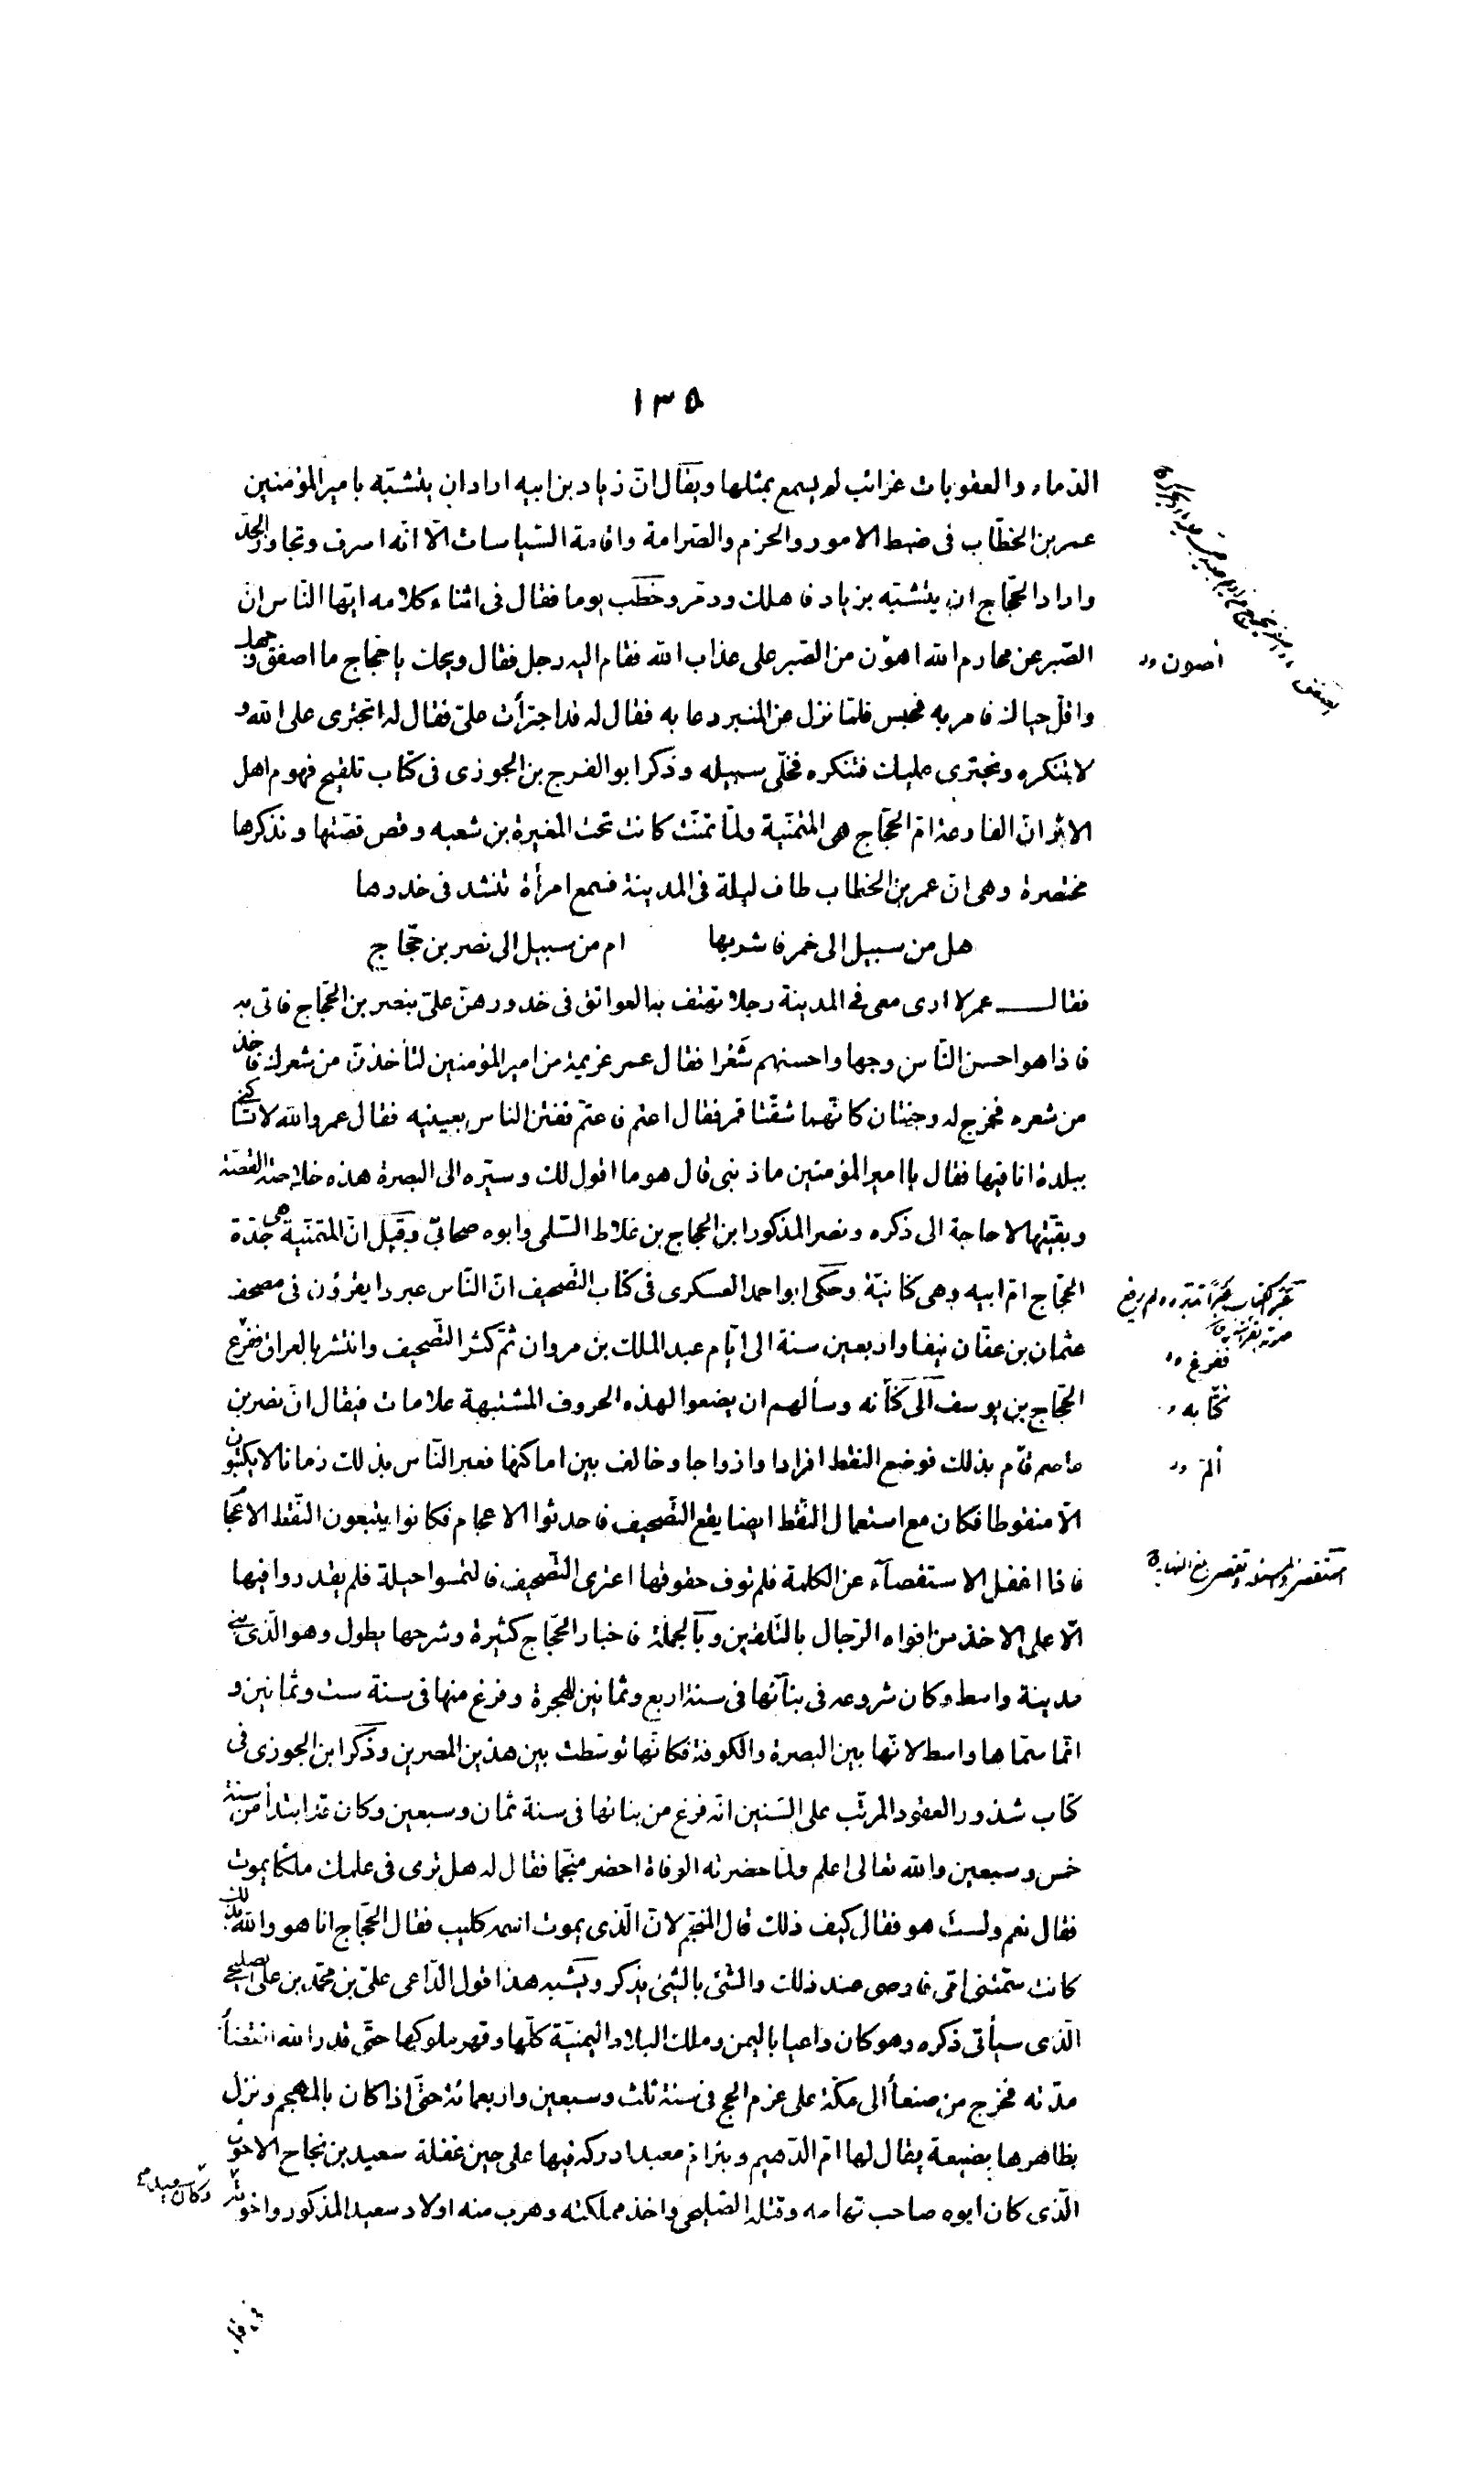 ١٣٥
الدماء والعقوبات غرائب لم يسمع بمثلها ويقال ان زياد بن ابيه اراد ان يتشبّه بامير المؤمنين
عمر بن الخطّاب فى ضبط الامور والحزم والصّرامة واقامة السّياسات الّا انّه اسرف وتجاوز الحدّ
واراد الحجّاج ان يتشبّه بزياد فاهلك ودمّر وخطب يوما فقال فى اثناء كلامه ايّها النّاس انّ
الصّبر عن محارم الله اهون من الصّبر على عذاب الله فقام اليه رجل فقال ويحك يا حجّاج ما اصفق وجهك
واقلّ حياك فامر به فحبس فلمّا نزل عن المنبر دعا به فقال له قد اجترأت علىّ فقال له اتجترى على الله و
لا تنكره ونجترى عليك فتنكره فخلّى سبيله وذكر ابو الفرج بن الجوزى فى كتاب تلقيح فهوم اهل
الاثر انّ الفارعة امّ الحجّاج هى المتمنّية ولمّا تمنّت كانت تحت المغيرة بن شعبه وقص قصّتها ونذكرها
مختصرة وهى ان عمر بن الخطاب طاف ليلة فى المدينة فسمع امرأة تنشد فى خدرها
هل من سبيل الى خمر فاشربها ام من سبيل الى نصر بن حجّاج
فقال عمر لا ارى معى فى المدينة رجلا تهتف به العواتق فى خدورهنّ علىّ بنصر بن الحجّاج فاتى به
فاذا هو احسن النّاس وجها واحسنهم شعرا فقال عمر عزيمة من امير المؤمنين لتأخذنّ من شعرك فاخذ
من شعره فخرج له وجنتان كانّهما شقّتا قمر فقال اعتم فاعتمّ ففتن الناس بعينيه فقال عمر والله لا تساكننى
ببلدة انا فيها فقال يا امير المؤمنين ما ذنبى قال هو ما اقول لك وسيّره الى البصرة هذه خلاصة القصّة
وبقيّتها لا حاجة الى ذكره ونصر المذكور ابن الحجاج بن علاط السّلمى وابوه صحابىّ وقيل انّ المتمنّية هى جدّة
الحجّاج امّ ابيه وهى كنانيّة وحكى ابو احمد العسكرى فى كتاب التّصحيف انّ النّاس غبروا يقرؤن فى مصحف
عثمان بن عفّان نيفا واربعين سنة الى ايّام عبد الملك بن مروان ثمّ كثر التّصحيف وانتشر بالعراق ففزع
الحجّاج بن يوسف الى كتّابه وسألهم ان يضعوا لهذه الحروف المشتبهة علامات فيقال انّ نصر بن
عاصم قام بذلك فوضع النقط افرادا وازواجا وخالف بين اماكنها فغبر النّاس بذلك زمانا لا يكتبون
الّا منقوطا فكان مع استعمال النّقط ايضا يقع التّصحيف فاحدثوا الاعجام فكانوا يتبعون النّقط الاعجام
فاذا اغفل الاستقصآء عن الكلمة فلم توف حقوقها اعترى التّصحيف فالتمسوا حيلة فلم يقدروا فيها
الّا على الاخذ من افواه الرّجال بالتّلقين وبالجملة فاخبار الحجّاج كثيرة وشرحها يطول وهو الّذى بنى
مدينة واسط وكان شروعه فى بنآئها فى سنة اربع وثمانين للهجرة وفرغ منها فى سنة ست وثمانين و
انّما سمّاها واسط لانّها بين البصرة والكوفة فكانّها توسّطت بين هذين المصرين وذكر ابن الجوزى فى
كتاب شذور العقود المرتّب على السّنين انّه فرغ من بنائها فى سنة ثمان وسبعين وكان قد ابتدأ من سنة
خمس وسبعين والله تعالى اعلم ولمّا حضرته الوفاة احضر منجّما فقال له هل ترى فى علمك ملكا يموت
فقال نعم ولست هو فقال كيف ذلك قال المنجّم لانّ الّذى يموت اسمه كليب فقال الحجّاج انا هو والله بذلك
كانت سمّتنى امّى فاوصى عند ذلك والشّىء بالشّىء يذكر ويشبه هذا قول الدّاعى علىّ بن محمّد بن على الصليحى
الّذى سيأتى ذكره وهو كان داعيا باليمن وملك البلاد اليمنيّة كلّها وقهر ملوكها حتّى قدر الله انقضأ
مدّته فخرج من صنعأ الى مكّة على عزم الحج فى سنة ثلث وسبعين واربعمائة حتّى اذا كان بالمهجم ونزل
بظاهرها بضيعة يقال لها امّ الدّهيم وبئر امّ معبد ادركه فيها على حين غفلة سعيد بن نجاح الاحول
الّذى كان ابوه صاحب تهامه وقتله الصّليحى واخذ مملكته وهرب منه اولاد سعيد المذكور واخوته
اصون
ففرغ
كتابه